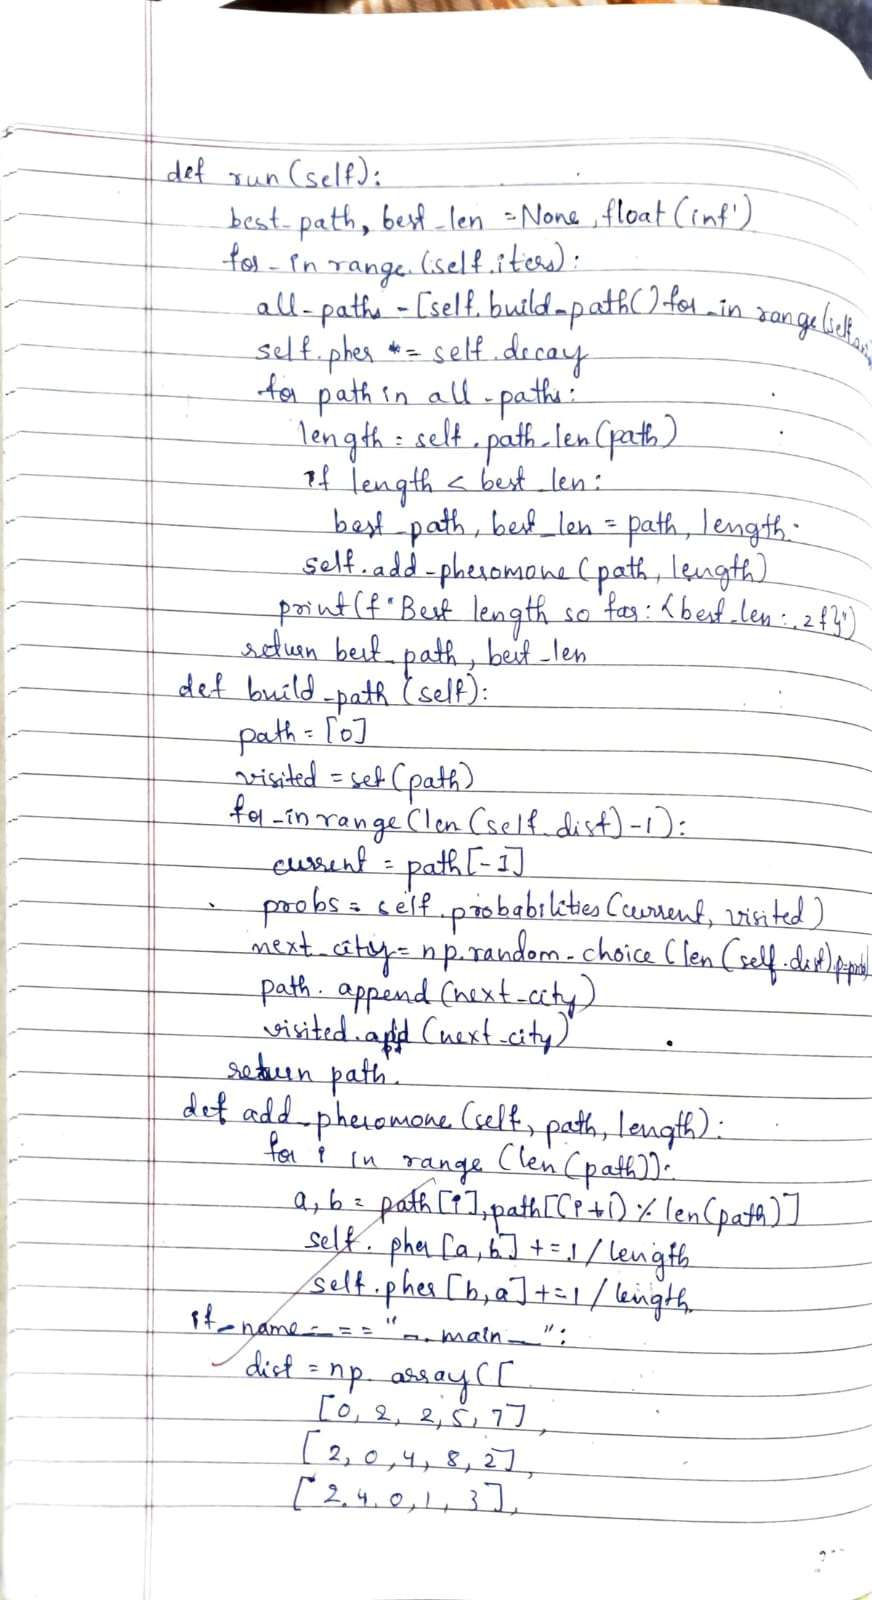 def run(self):
best_path, best_len = None, float(inf')
for _ in range(self.iters):
all-paths = [self.build-path() for _ in range(self.
self.pher *= self.decay
for path in all-paths:
length = self.path_len(path)
if length < best_len:
best_path, best_len = path, length
self.add-pheromone(path, length)
print(f"Best length so far: {best_len:.2f}")
return best_path, best_len
def build_path(self):
path = [0]
visited = set(path)
for _ in range(len(self.dist)-1):
current = path[-1]
probs = self.probabilities(current, visited)
next_city = np.random.choice(len(self.dist), p=probs)
path.append(next-city)
visited.add(next-city)
return path.
def add_pheromone(self, path, length):
for i in range(len(path)):
a, b = path[i], path[(i+1) % len(path)]
self.pher[a, b] += 1/length
self.pher[b, a] += 1/length
if _name_ == "__main_":
dist = np.array([
[0, 2, 2, 5, 7],
[2, 0, 4, 8, 2],
[2, 4, 0, 1, 3],